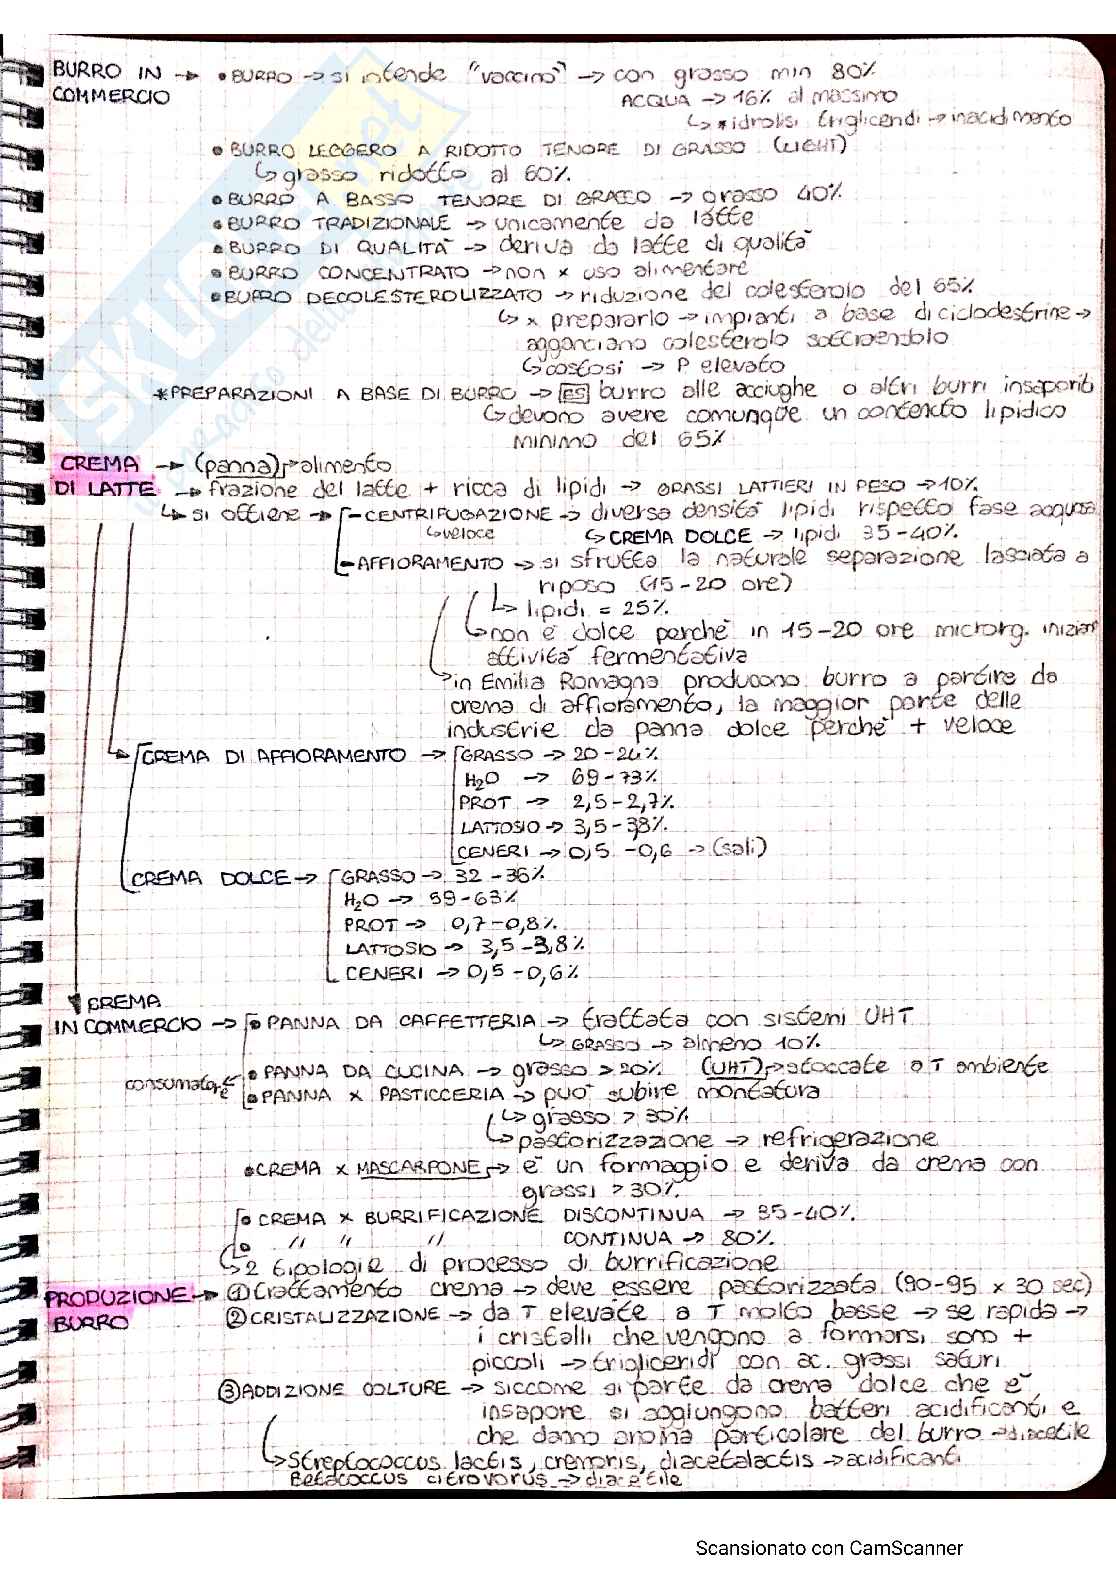 BURRO IN → • BURRO → si intende "vaccino" → con grasso min 80%
COMMERCIO ACQUA → 16% al massimo
↳ * idrolisi trigliceridi → inacidimento
• BURRO LEGGERO A RIDOTTO TENORE DI GRASSO (LIGHT)
↳ grasso ridotto al 60%
• BURRO A BASSO TENORE DI GRASSO → grasso 40%
• BURRO TRADIZIONALE → unicamente da latte
• BURRO DI QUALITÀ → deriva da latte di qualità
• BURRO CONCENTRATO → non x uso alimentare
• BURRO DECOLESTEROLIZZATO → riduzione del colesterolo del 65%
↳ x prepararlo → impianti a base di ciclodestrine →
agganciano colesterolo sottraendolo
↳ costosi → P elevato
* PREPARAZIONI A BASE DI BURRO → ES burro alle acciughe o altri burri insaporiti
↳ devono avere comunque un contenuto lipidico
minimo del 65%
CREMA → (panna) → alimento
DI LATTE → frazione del latte + ricca di lipidi → GRASSI LATTIERI IN PESO → 10%
↳ si ottiene → - CENTRIFUGAZIONE → diversa densità lipidi rispetto fase acquosa
↳ veloce ↳ CREMA DOLCE → lipidi 35-40%
- AFFIORAMENTO → si sfrutta la naturale separazione lasciata a
riposo (15-20 ore)
↳ lipidi = 25%
↳ non è dolce perchè in 15-20 ore microrg. iniziano
attività fermentativa
in Emilia Romagna producono burro a partire da
crema di affioramento, la maggior parte delle
industrie da panna dolce perchè + veloce
CREMA DI AFFIORAMENTO → GRASSO → 20-24%
H₂O → 69-73%
PROT → 2,5-2,7%
LATTOSIO → 3,5-3,8%
CENERI → 0,5-0,6 → (sali)
CREMA DOLCE → GRASSO → 32-36%
H₂O → 59-63%
PROT → 0,7-0,8%
LATTOSIO → 3,5-3,8%
CENERI → 0,5-0,6%
CREMA
IN COMMERCIO → • PANNA DA CAFFETTERIA → trattata con sistemi UHT
↳ GRASSO → almeno 10%
consumatore • PANNA DA CUCINA → grasso > 20% (UHT) → stoccate a T ambiente
• PANNA x PASTICCERIA → può subire montatura
↳ grasso > 30%
↳ pastorizzazione → refrigerazione
• CREMA x MASCARPONE → è un formaggio e deriva da crema con
grassi > 30%
• CREMA x BURRIFICAZIONE DISCONTINUA → 35-40%
• " " " CONTINUA → 80%
↳ 2 tipologie di processo di burrificazione
PRODUZIONE → ① trattamento crema → deve essere pastorizzata (90-95 x 30 sec)
BURRO ② CRISTALIZZAZIONE → da T elevate a T molto basse → se rapida →
i cristalli che vengono a formarsi sono +
piccoli → trigliceridi con ac. grassi saturi
③ ADDIZIONE COLTURE → siccome si parte da crema dolce che è
insapore si aggiungono batteri acidificanti e
che danno aroma particolare del burro → diacetile
↳ Streptococcus lactis, cremoris, diacetalactis → acidificanti
Betacoccus citrovorus → diacetile
SKUOLA.net
Scansionato con CamScanner